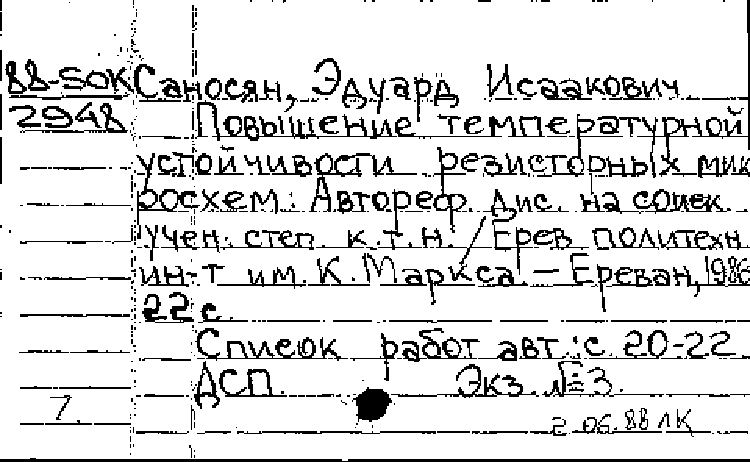 88-50К Саносян, Эдуард Исаакович.
2948 Повышение температурной
устойчивости резисторных мик
росхем: Автореф. дис. на соиск.
учен. степ. к.т.н. / Ерев. политехн.
ин-т им. К. Маркса. – Ереван, 1986
22 с.
Список работ авт.: с. 20-22.
ДСП. Экз. № 3.
7.
2.06.88 ЛК